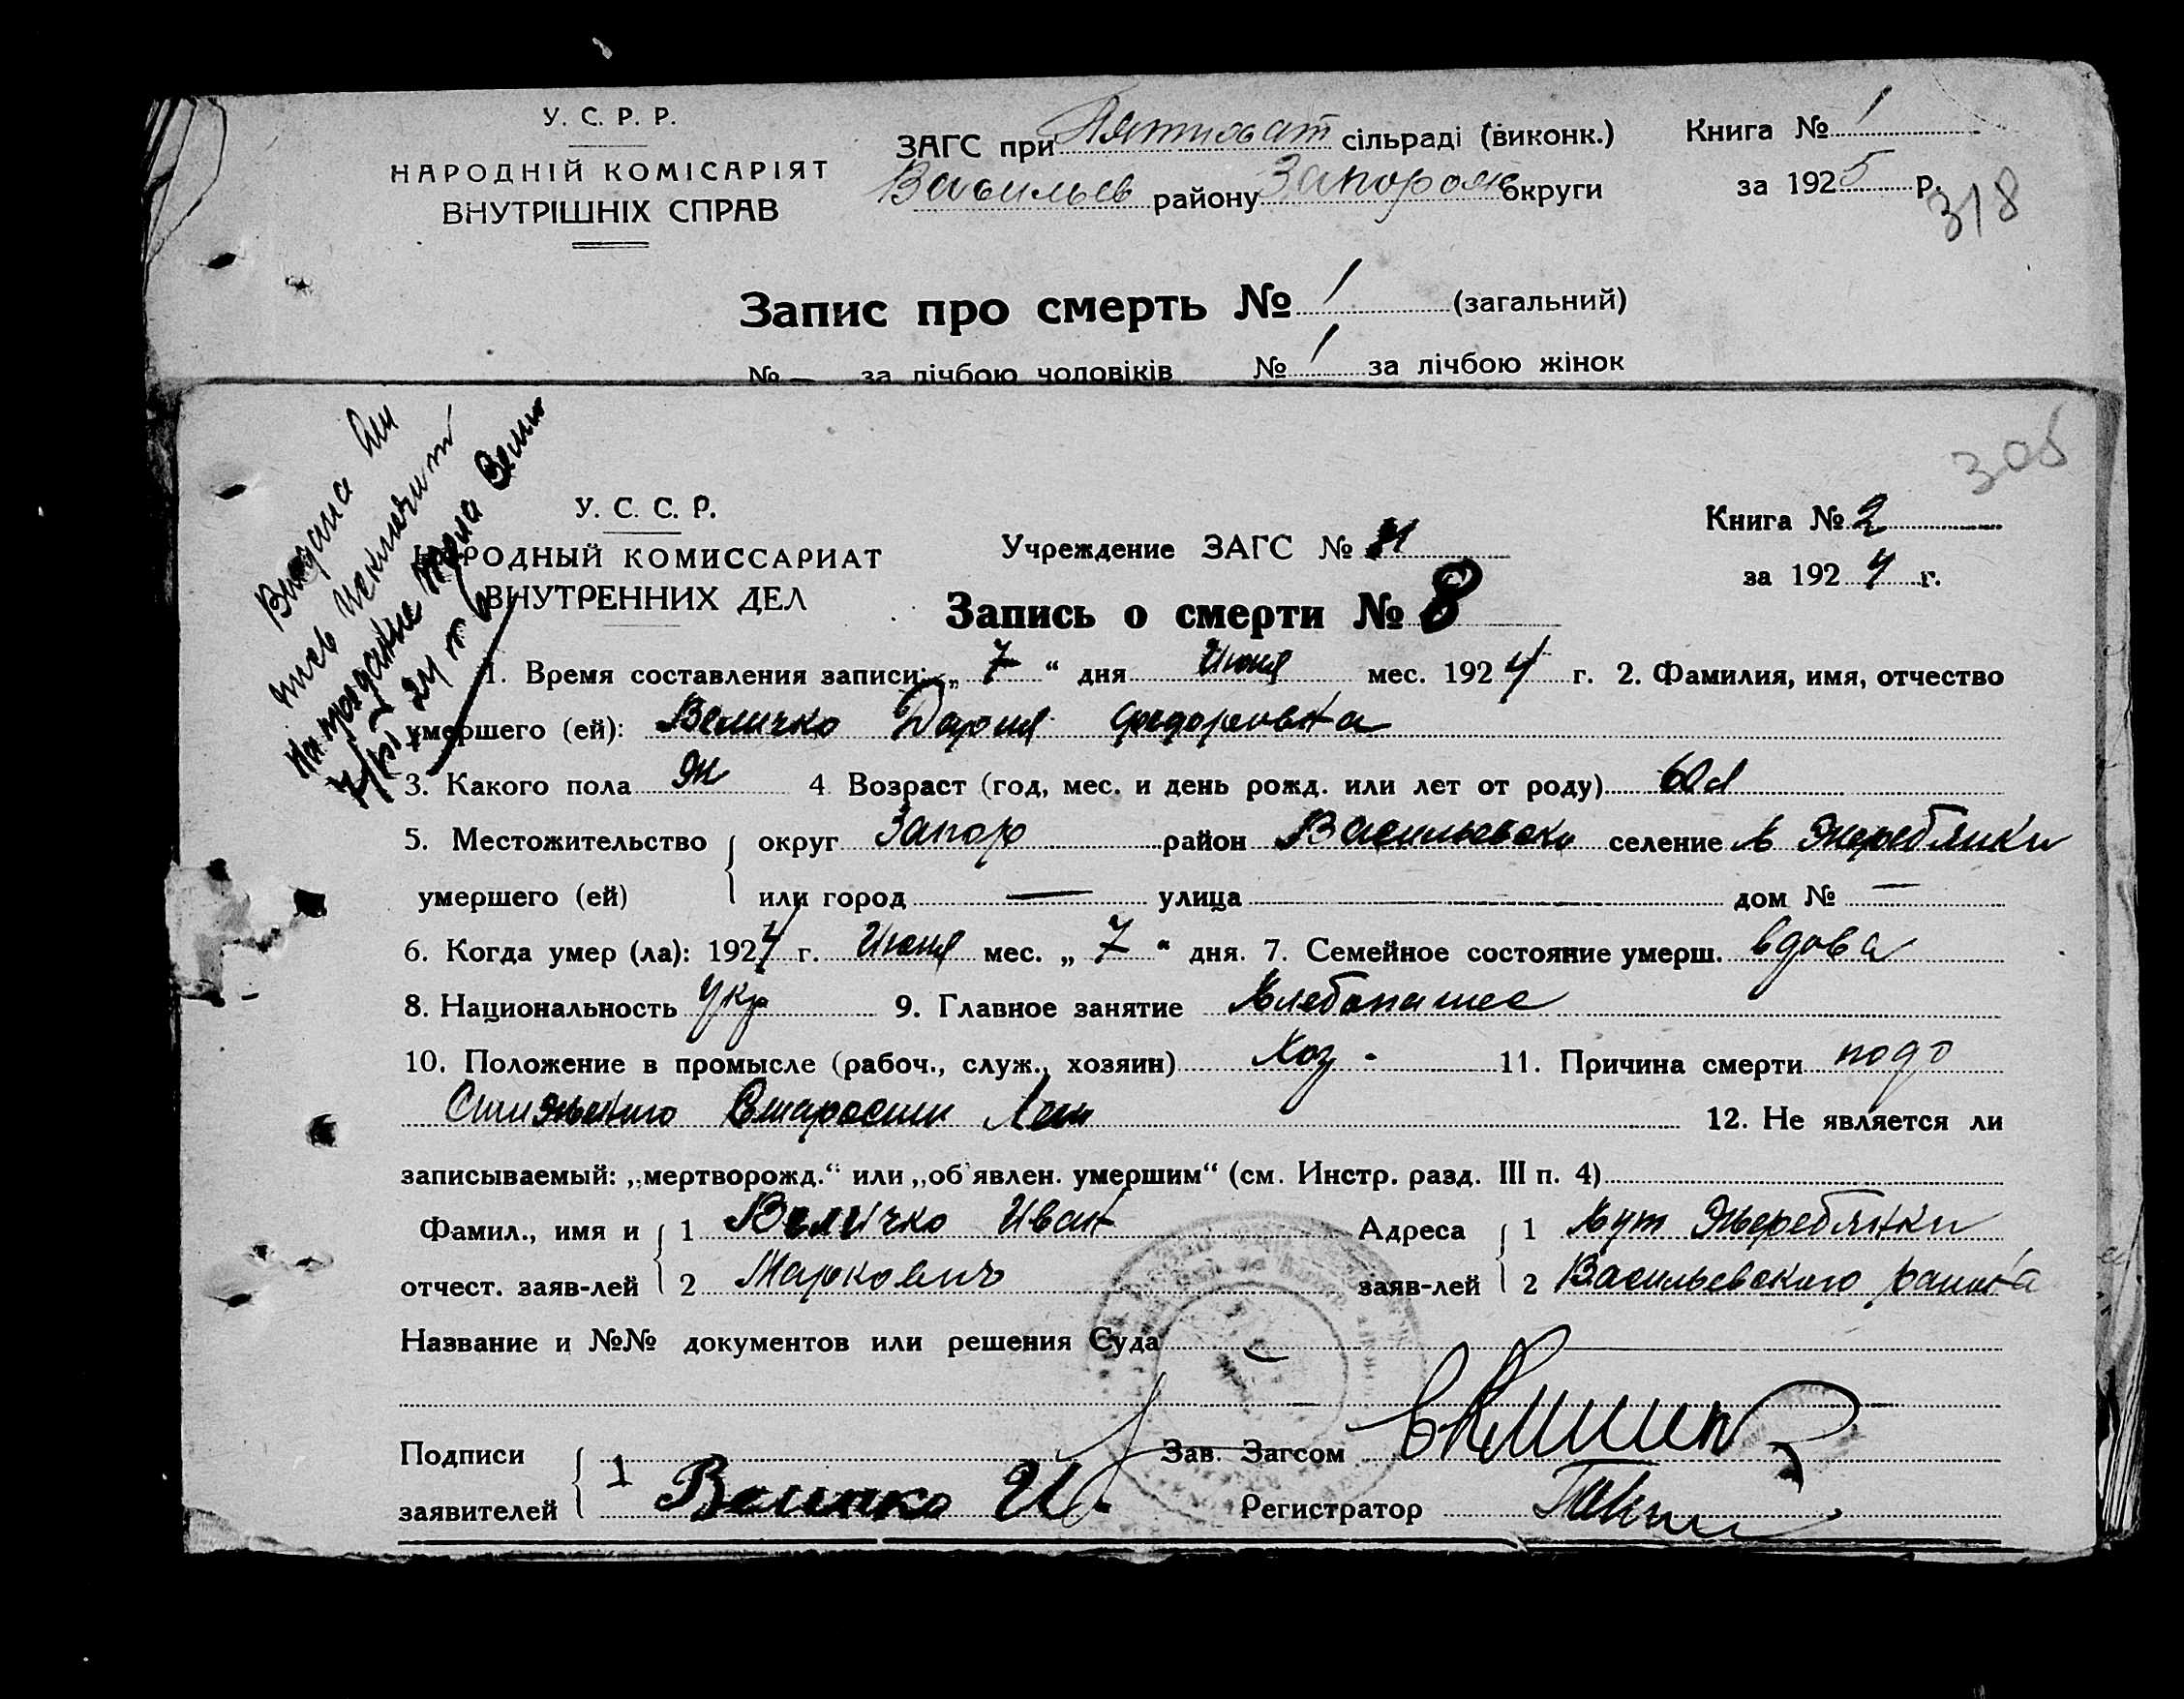 У. С. Р. Р.
НАРОДНІЙ КОМІСАРІЯТ
ВНУТРІШНІХ СПРАВ
ЗАГС при Пятихат сільраді (виконк.)
Васильев району Запорож округи
Книга № 1
за 1925 р.
318
Запис про смерть № 1 (загальний)
№ — за лічбою чоловіків № 1 за лічбою жінок
305
Выдана
У. С. С. Р.
НАРОДНЫЙ КОМИССАРИАТ
ВНУТРЕННИХ ДЕЛ
Учреждение ЗАГС №
Книга № 2
за 1924 г.
Запись о смерти № 8
1. Время составления записи: „ 7 “ дня Июня мес. 1924 г. 2. Фамилия, имя, отчество
умершего (ей): Величко Дария Федоровна
3. Какого пола Ж 4. Возраст (год, мес. и день рожд. или лет от роду) 60 л
5. Местожительство округ Запор район Васильевски селение х Жеребянки
умершего (ей) или город — улица — дом № —
6. Когда умер (ла): 1924 г. Июня мес. „ 7 “ дня. 7. Семейное состояние умерш. вдова
8. Национальность Укр 9. Главное занятие Хлебопашес
10. Положение в промысле (рабоч., служ., хозяин) Хоз. 11. Причина смерти
Встарости Лет 12. Не является ли
записываемый: „мертворожд.“ или „об'явлен. умершим“ (см. Инстр. разд. III п. 4)
Фамил., имя и 1 Величко Иван Адреса 1 Хут Жеребянки
отчест. заяв-лей 2 Маркович заяв-лей 2 Васильевского раиона
Название и №№ документов или решения Суда —
Подписи Зав. Загсом
заявителей 1 Величко И. Регистратор